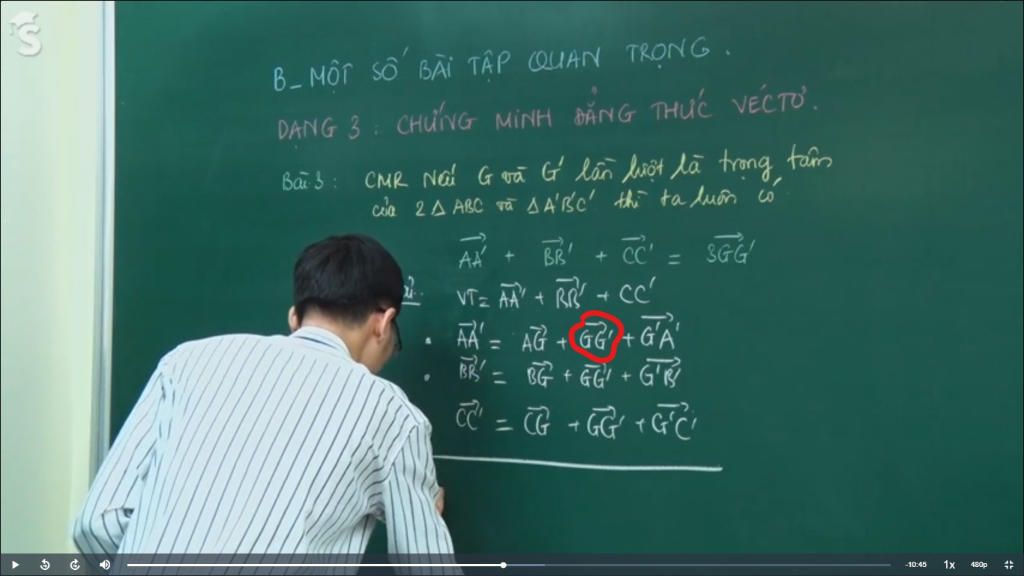 S
B_ MỘT SỐ BÀI TẬP QUAN TRỌNG.
DẠNG 3 : CHỨNG MINH ĐẲNG THỨC VÉCTƠ.
Bài 3 : CMR Nếu G và G' lần lượt là trọng tâm
của 2 Δ ABC và Δ A'B'C' thì ta luôn có
AA' + BB' + CC' = 3GG'
VT = AA' + BB' + CC'
• AA' = AG + GG' + G'A'
• BB' = BG + GG' + G'B'
CC' = CG + GG' + G'C'
-10:45 1x 480p